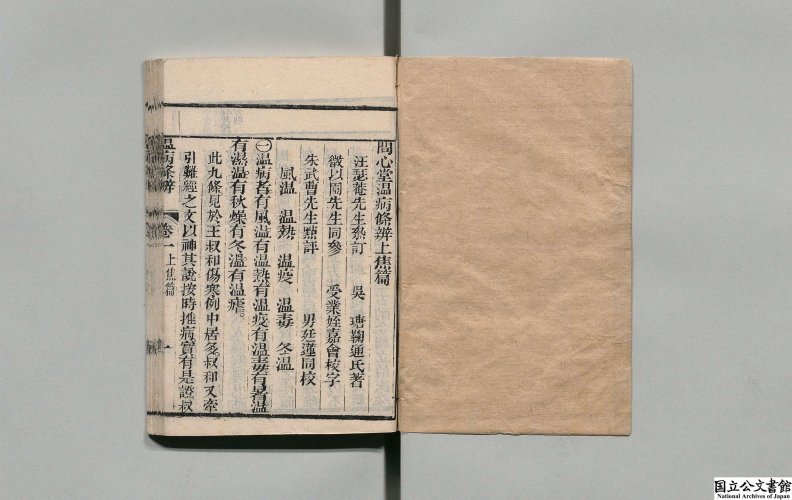 問心堂温病條辨上焦篇
汪瑟菴先生叅訂　吳　瑭鞠通氏著
徵以園先生同參　受業姪嘉會校字
朱武曹先生㸃評　男廷蓮同校
風温　温熱　温疫　温毒　冬温
㊀温病者有風温有温熱有温疫有温毒有暑温
有濕温有秋燥有冬温有温瘧。
此九條見於王叔和傷寒例中居多叔和又牽
引難經之文以神其說按時推病實有是證叔
温病條辨　卷一上焦篇　一
国立公文書館
National Archives of Japan